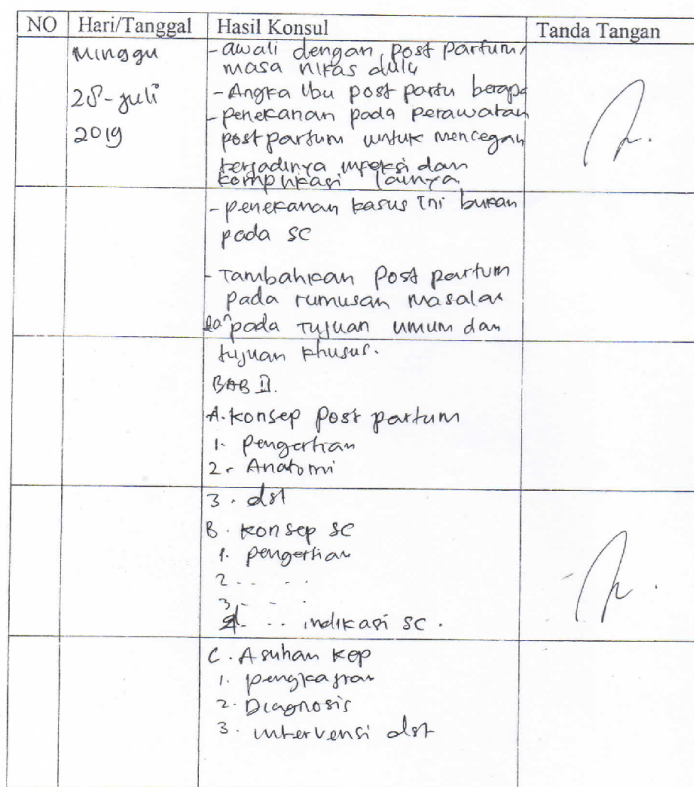 NO Hari/Tanggal Hasil Konsul Tanda Tangan
Minggu
28-Juli
2019
- awali dengan post partum/
masa nifas dulu
- Angka Ibu post partu berapa
- penekanan pada perawatan
post partum untuk mencegah
terjadinya infeksi dan
komplikasi lainya
- penekanan kasus ini bukan
pada SC
- Tambahkan Post partum
pada rumusan masalah
dan pada Tujuan umum dan
tujuan khusus.
BAB II.
A. Konsep Post partum
1. pengertian
2. Anatomi
3. dst
B. Konsep SC
1. pengertian
2. . . . .
3. . .
4. . . indikasi SC.
C. Asuhan Kep
1. pengkajian
2. Diagnosis
3. intervensi dst